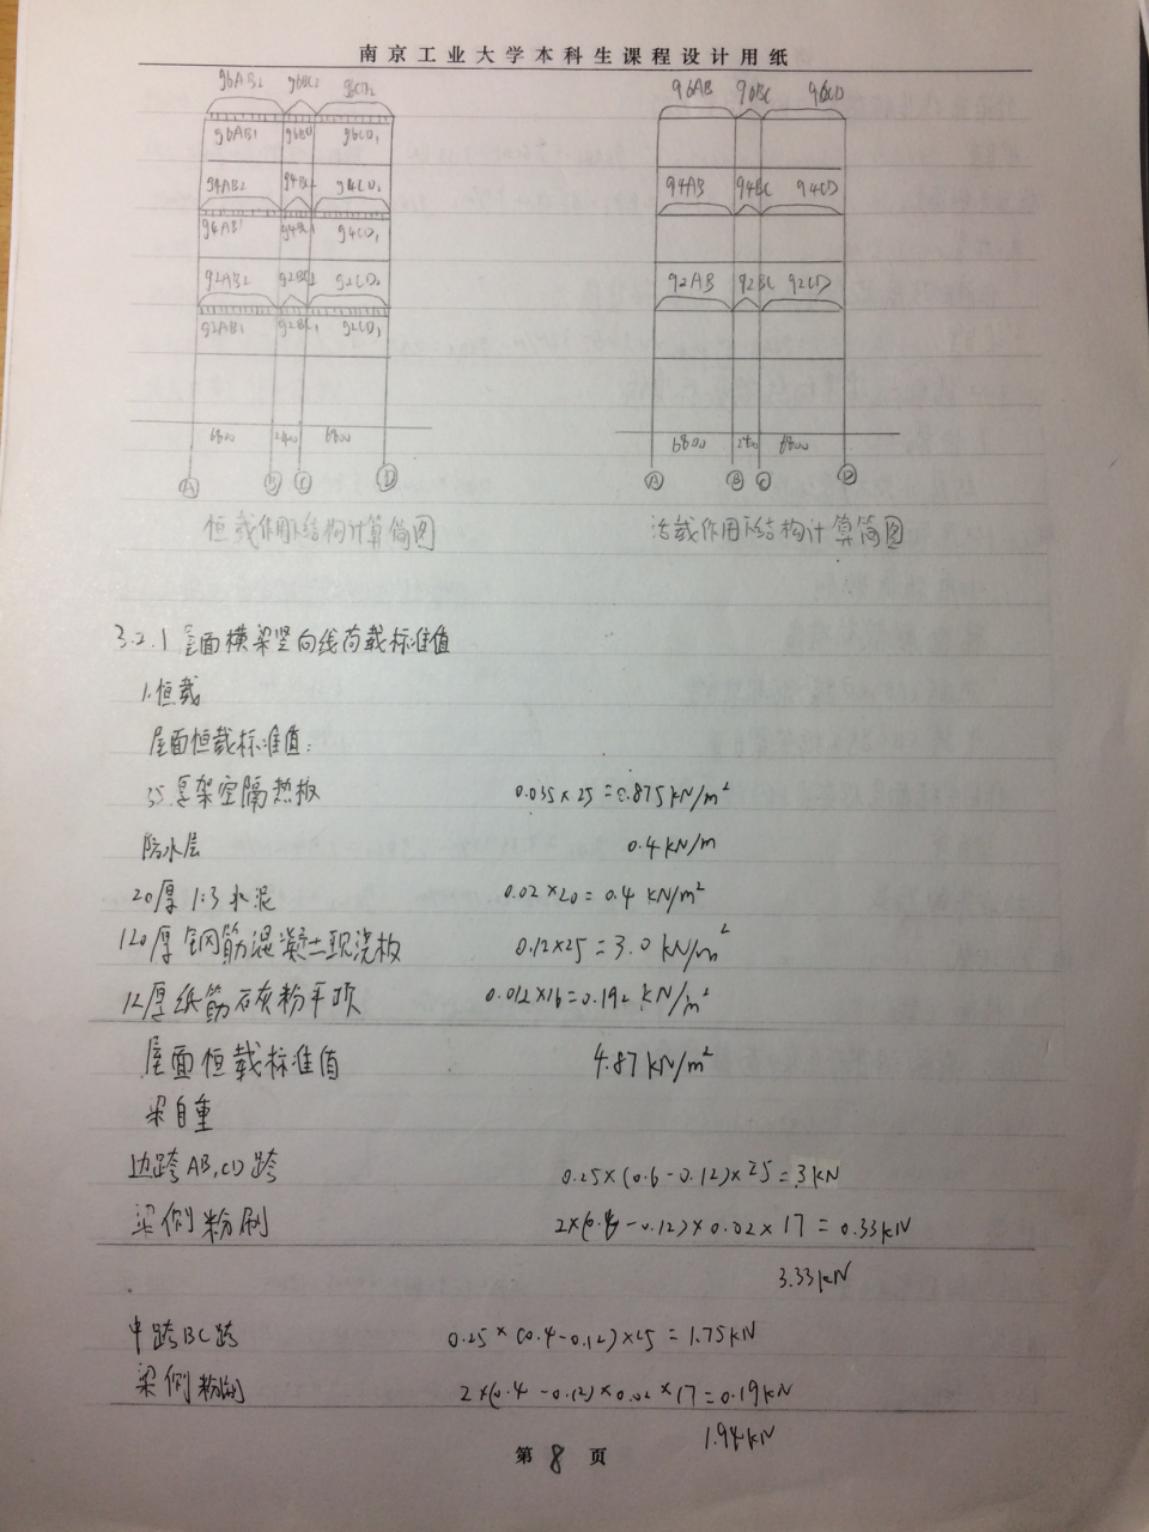 南京工业大学本科生课程设计用纸
g6AB2 g6BC2 g6CD2
g6AB1 g6BC1 g6CD1
g4AB2 g4BC2 g4CD2
g4AB1 g4BC1 g4CD1
g2AB2 g2BC2 g2CD2
g2AB1 g2BC1 g2CD1
6800 2400 6800
A B C D
恒载作用下结构计算简图
q6AB q6BC q6CD
q4AB q4BC q4CD
q2AB q2BC q2CD
6800 2400 6800
A B C D
活载作用下结构计算简图
3.2.1 屋面横梁竖向线荷载标准值
1.恒载
屋面恒载标准值:
35厚架空隔热板 0.035×25=0.875kN/m²
防水层 0.4kN/m
20厚1:3水泥 0.02×20=0.4 kN/m²
120厚钢筋混凝土现浇板 0.12×25=3.0 kN/m²
12厚纸筋石灰粉平顶 0.012×16=0.192 kN/m²
屋面恒载标准值 4.87kN/m²
梁自重
边跨AB,CD跨 0.25×(0.6-0.12)×25=3kN
梁侧粉刷 2×(0.6-0.12)×0.02×17=0.33kN
3.33kN
中跨BC跨 0.25×(0.4-0.12)×25=1.75kN
梁侧粉刷 2×(0.4-0.12)×0.02×17=0.19kN
1.94kN
第 8 页